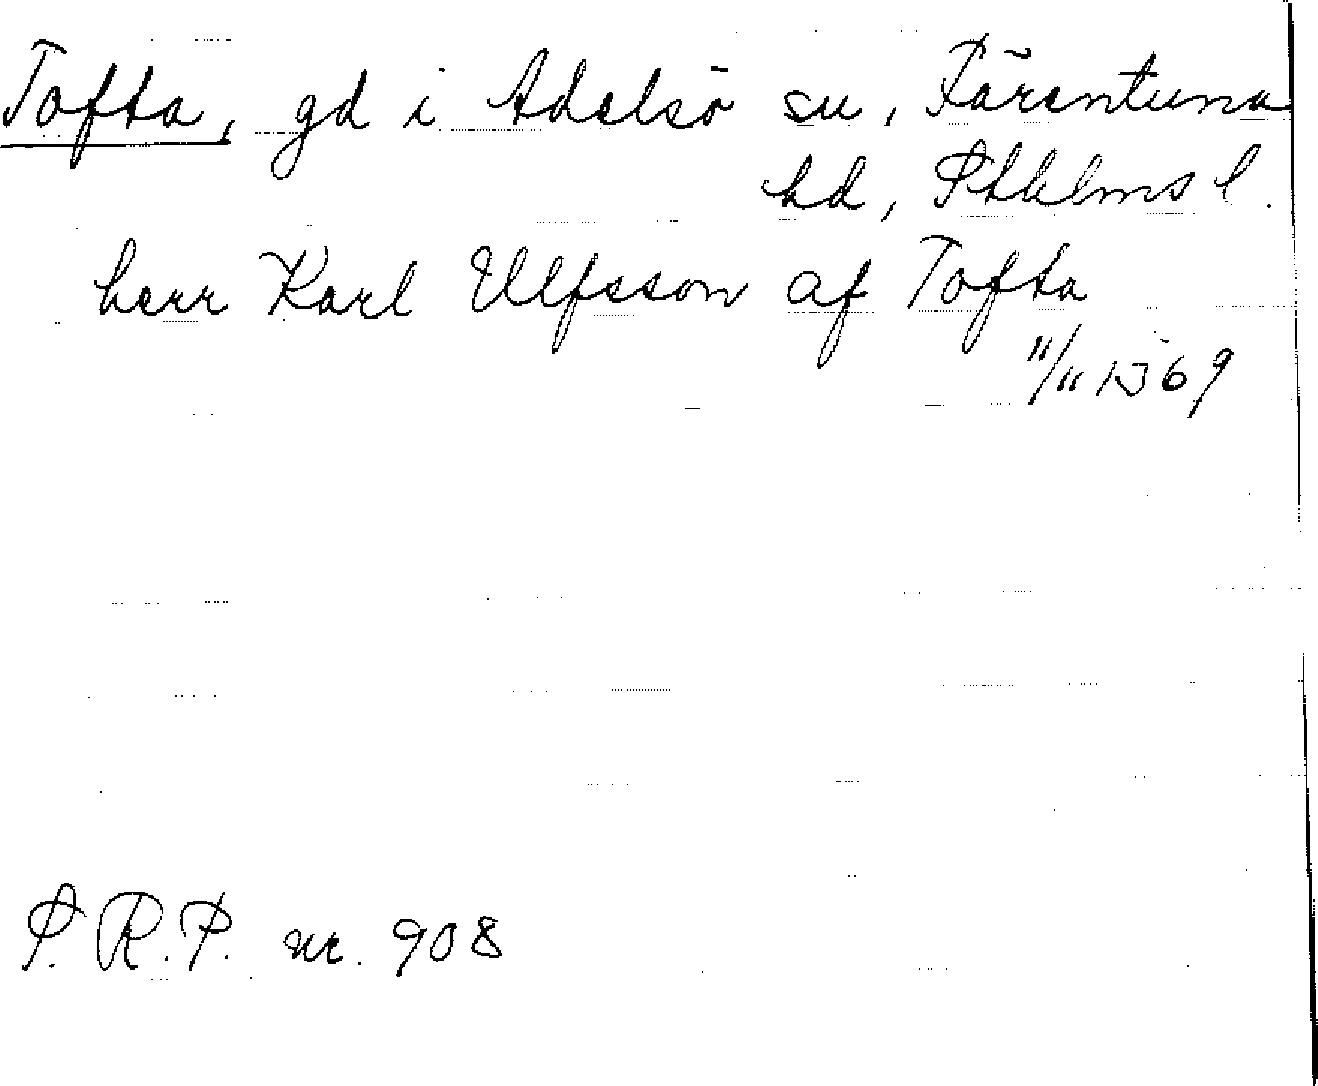 Tofta, gd i Adelsö sn, Färentuna
hd, Sthlms l.
herr Karl Ulfsson af Tofta
11/11 1369
S. R. P. nr. 908